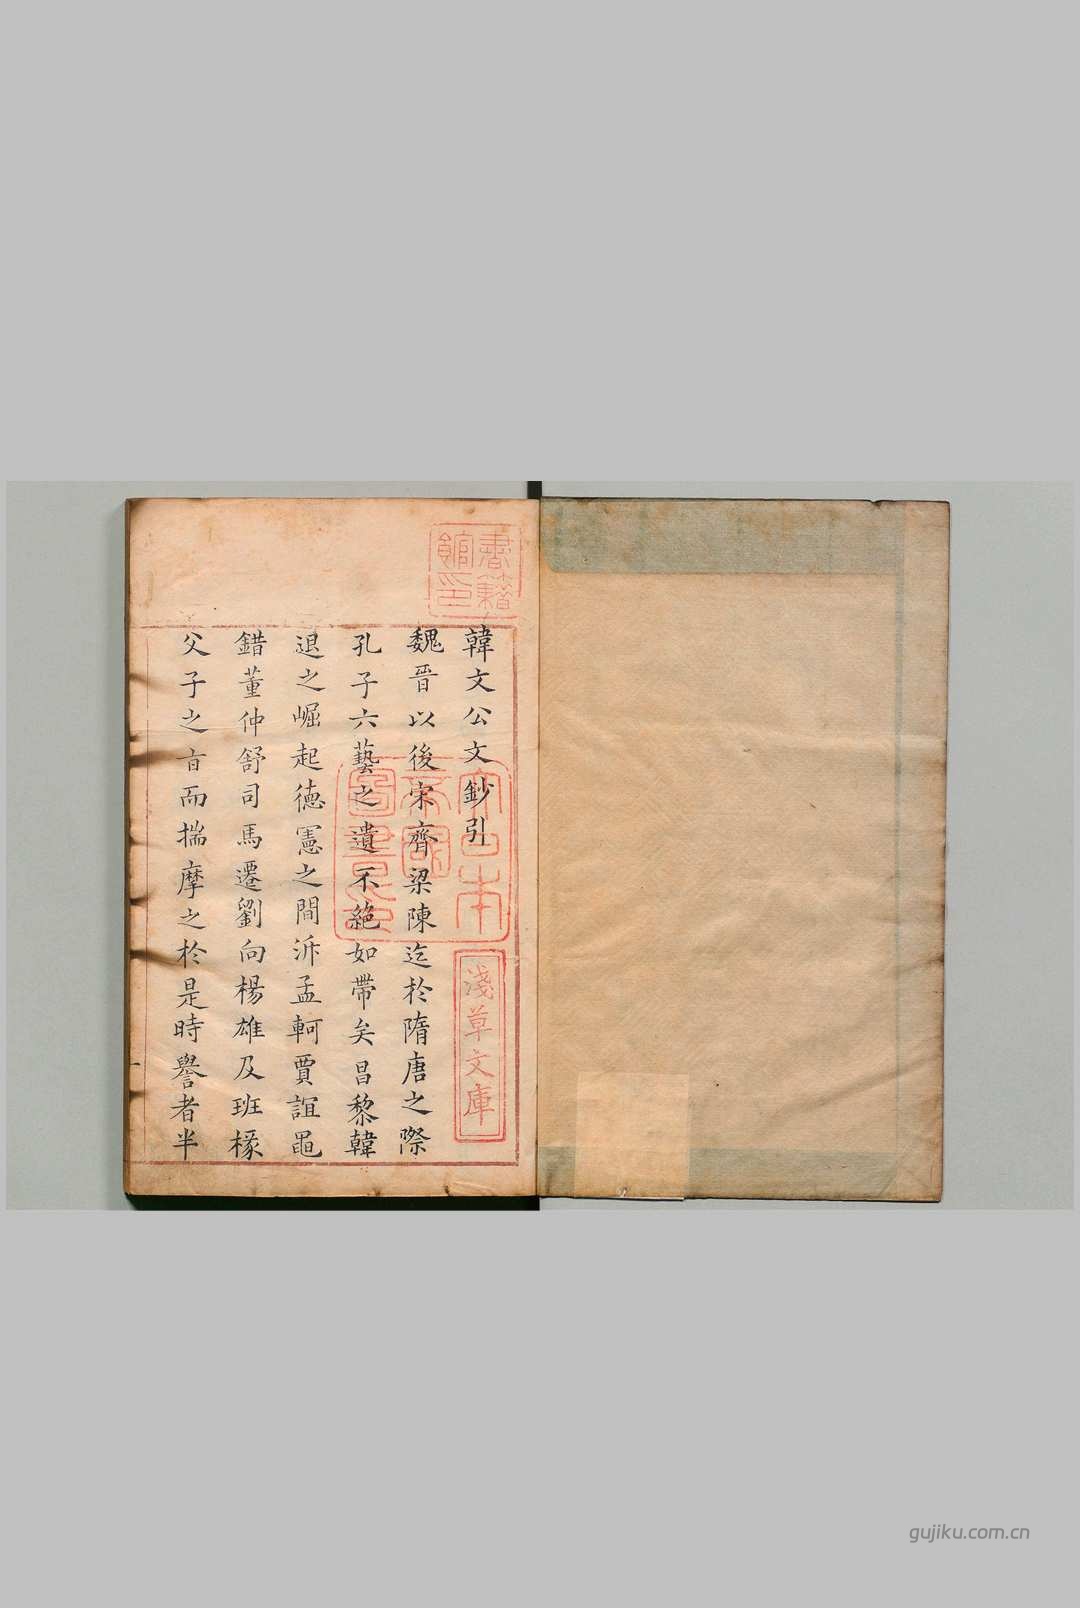 韓文公文鈔引
魏晉以後宋齊梁陳迄於隋唐之際
孔子六藝之遺不絕如帶矣昌黎韓
退之崛起德憲之間泝孟軻賈誼鼂
錯董仲舒司馬遷劉向楊雄及班椽
父子之旨而揣摩之於是時譽者半
書籍
館印
日本
帝國
圖書
淺草文庫
gujiku.com.cn